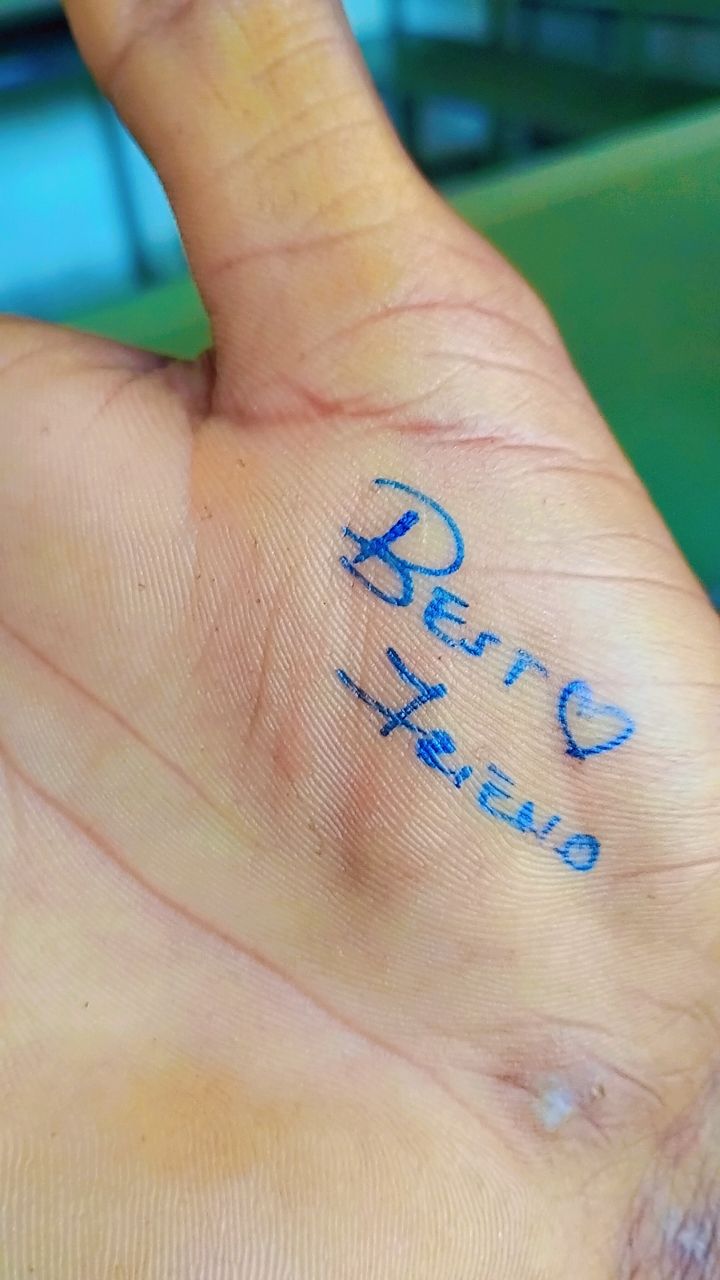 BEST ♡
FRIEND